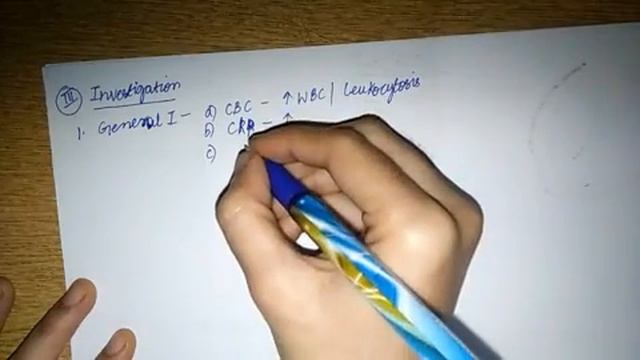 III Investigation
1. General I - a) CBC - ↑ WBC | Leukocytosis
b) CRP - ↑
c)